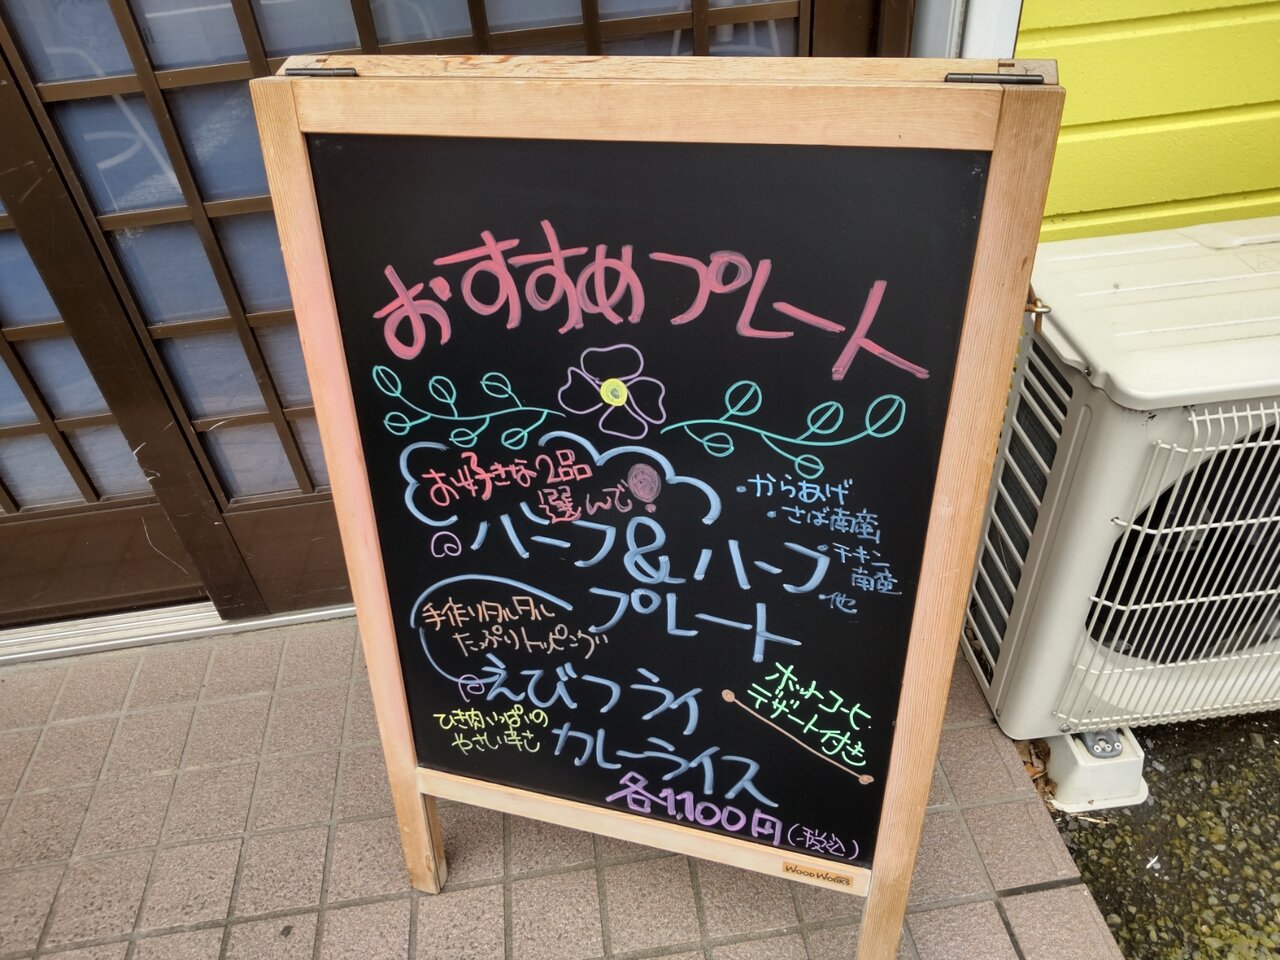 おすすめプレート
お好きな2品
選んで
ハーフ&ハーフ
プレート
・からあげ
・さば南蛮
チキン
南蛮
他
手作りタルタル
たっぷりトッピング
えびフライ
ひき肉いっぱいの
やさい辛さ
カレーライス
ホットコーヒー
デザート付き
各1,100円(税込)
WOOD WORKS